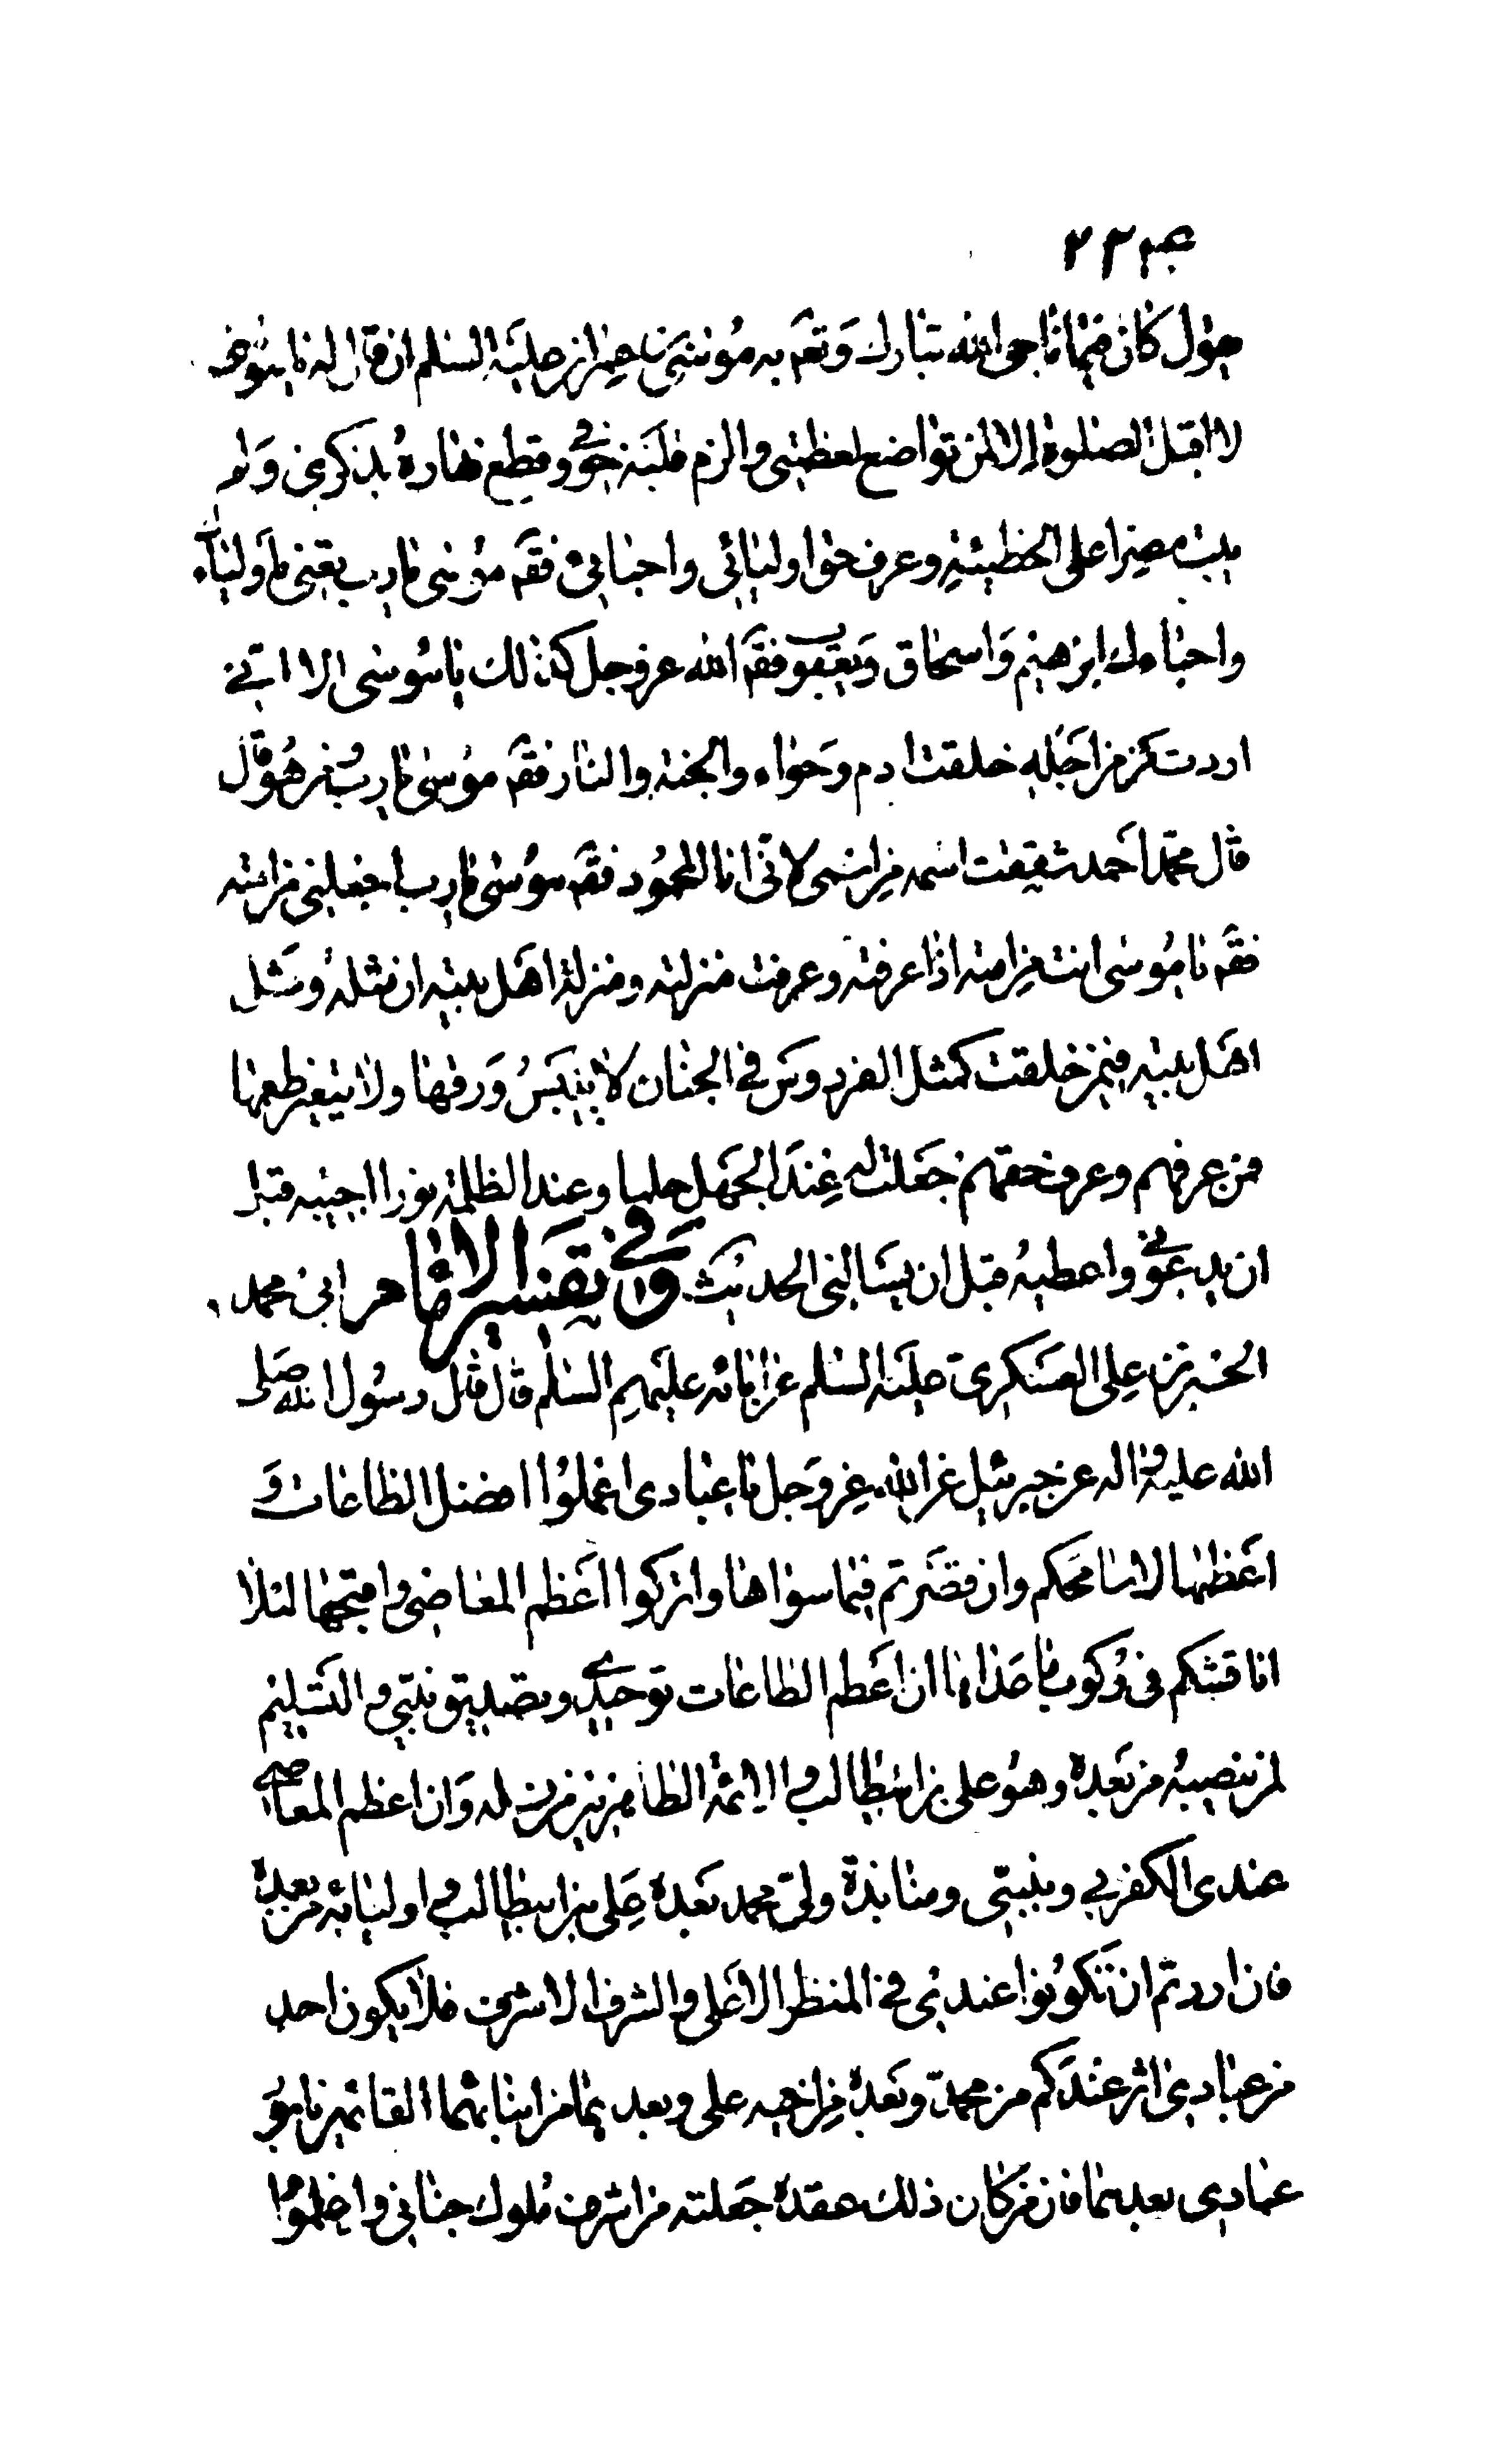 ص ٢٣٢
يقول كان فيما ناجى الله تبارك وتعه به موسى بن عمران عليه السلم ان قال له يا موسى
لا اقبل الصلوة الا لمن تواضع لعظمتى والزم قلبه خوفى وقطع نهاره بذكرى ولم
يبت مصرا على الخطيئة وعرف حق اوليائى واحبائى فقه موسى يارب يعنى باوليائك
واحبائك ابرهيم واسحاق ويعقوب فقه الله عز وجل كذلك يا موسى الا اننى
اردت من من اجله خلقت ادم وحواء والجنة والنار فقه موسى يارب من هو قال
قال محمد احمد شققت اسمه من اسمى لانى انا المحمود فقه موسى يارب اجعلنى من امته
فقه يا موسى انت من امته اذا عرفته وعرفت منزلته ومنزلة اهل بيته ان مثله ومثل
اهل بيته فيمن خلقت كمثل الفردوس فى الجنان لا ييبس ورقها ولا يتغير طعمها
فمن عرفهم وعرف حقهم جعلت له عند الجهل حلما وعند الظلمة نورا اجيبه قبل
ان يدعونى واعطيه قبل ان يسالنى الحديث وفى تفسير الامام ابى محمد
الحسن بن على العسكرى عليه السلم عن ابائه عليهم السلم قال قال رسول الله صلى
الله عليه واله عن جبرئيل عن الله عز وجل يا عبادى اعملوا افضل الطاعات و
اعظمها لاسامحكم وان قصرتم فيما سواها واتركوا اعظم المعاصى واقبحها لئلا
اناقشكم فى ركوب ما عداها ان اعظم الطاعات توحيدى وتصديق نبيى والتسليم
لمن ينصبه من بعده وهو على بن ابيطالب والائمة الطاهرين من نسله وان اعظم المعاصى
عندى الكفر بى وبنبيى ومنابذة ولى محمد بعده على بن ابيطالب واوليائه من بعده
فان اردتم ان تكونوا عندى فى المنظر الاعلى والشرف الاشرف فلا يكونن احد
من عبادى اثر عندكم من محمد وبعده من اخيه على وبعدهما من ابنائهما القائمين بامور
عبادى بعدهما فان من كان ذلك عقده جعلته من اشرف ملوك جنانى واعلموا